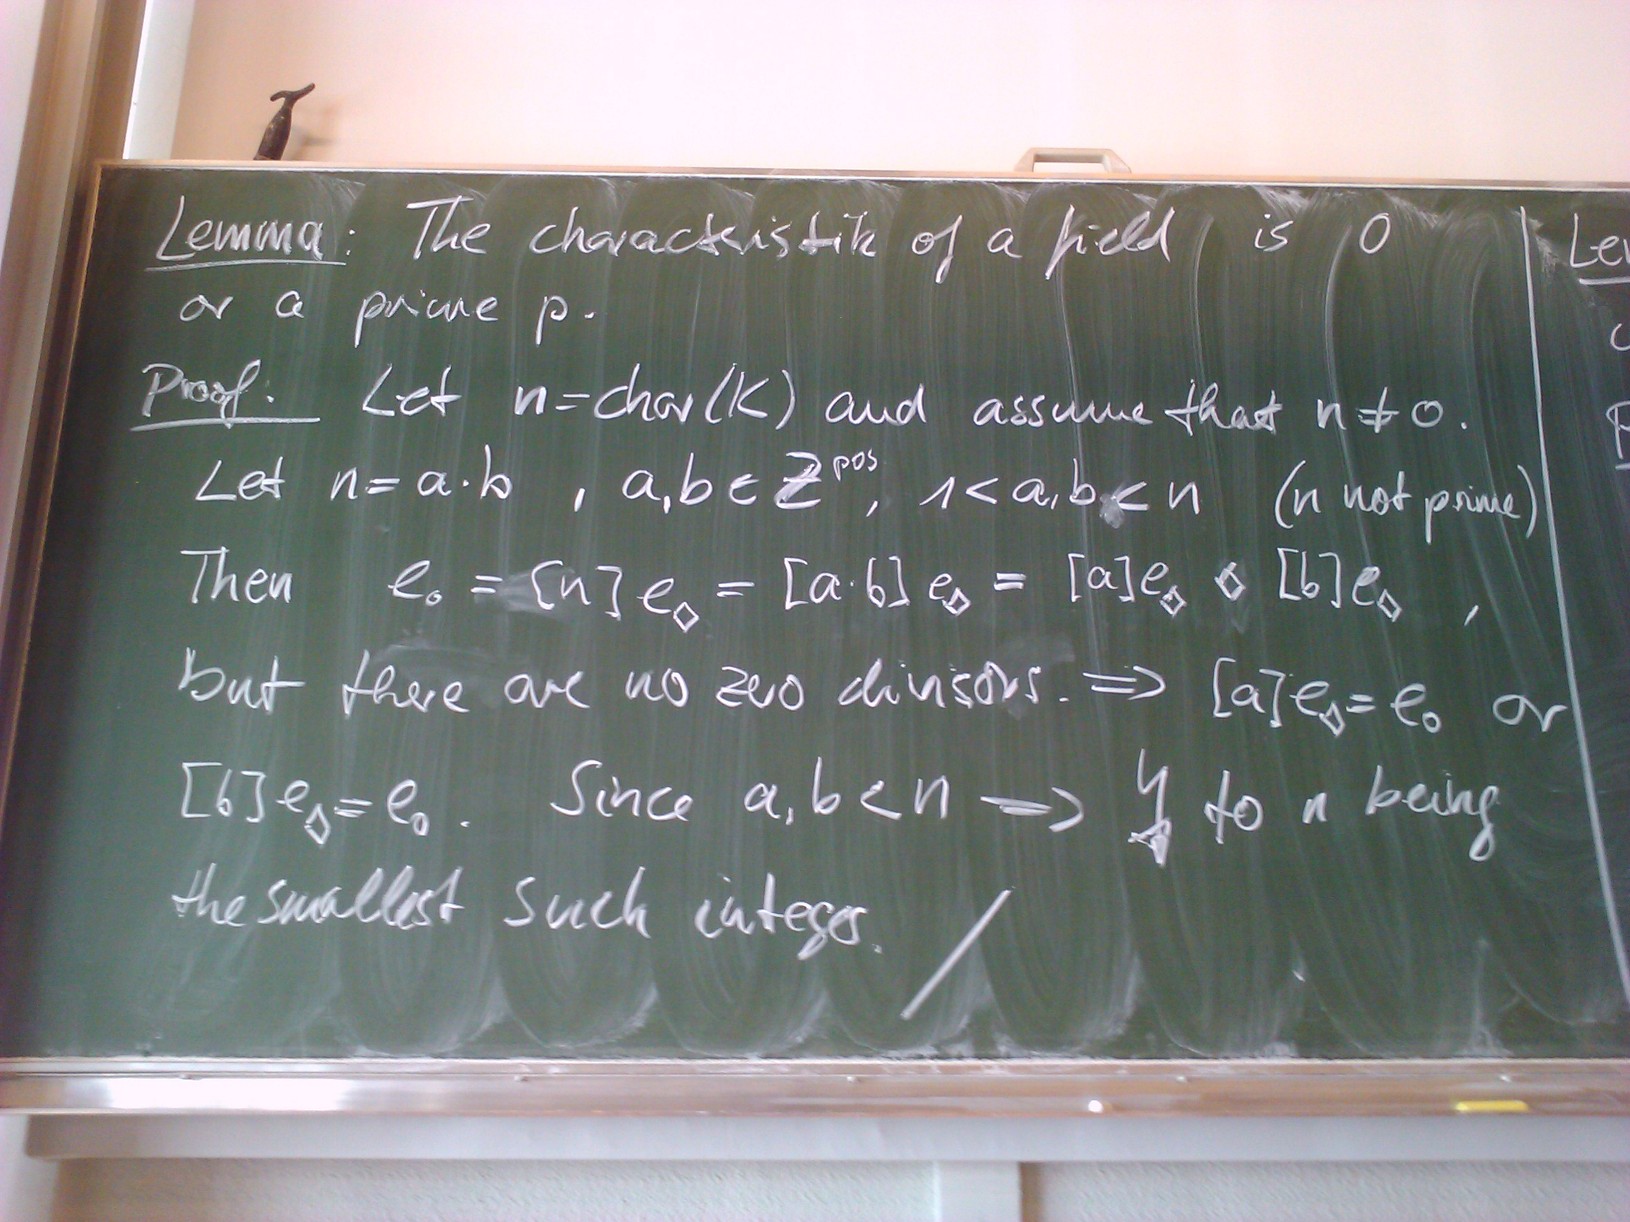 Lemma: The characteristik of a field is 0
or a prime p.
Proof: Let n=char(K) and assume that n≠0.
Let n=a·b , a,b∈ℤ^pos, 1<a,b<n (n not prime)
Then e₀ = [n]e_◇ = [a·b]e_◇ = [a]e_◇ ◇ [b]e_◇ ,
but there are no zero divisors. ⇒ [a]e_◇=e₀ or
[b]e_◇=e₀. Since a,b<n ⇒ ↯ to n being
the smallest such integer. /